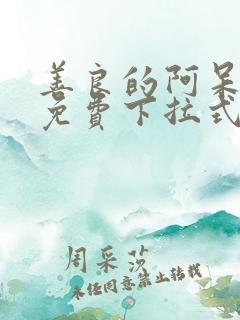 善良的阿呆
免費下拉式
周采莎
未经同意禁止转载